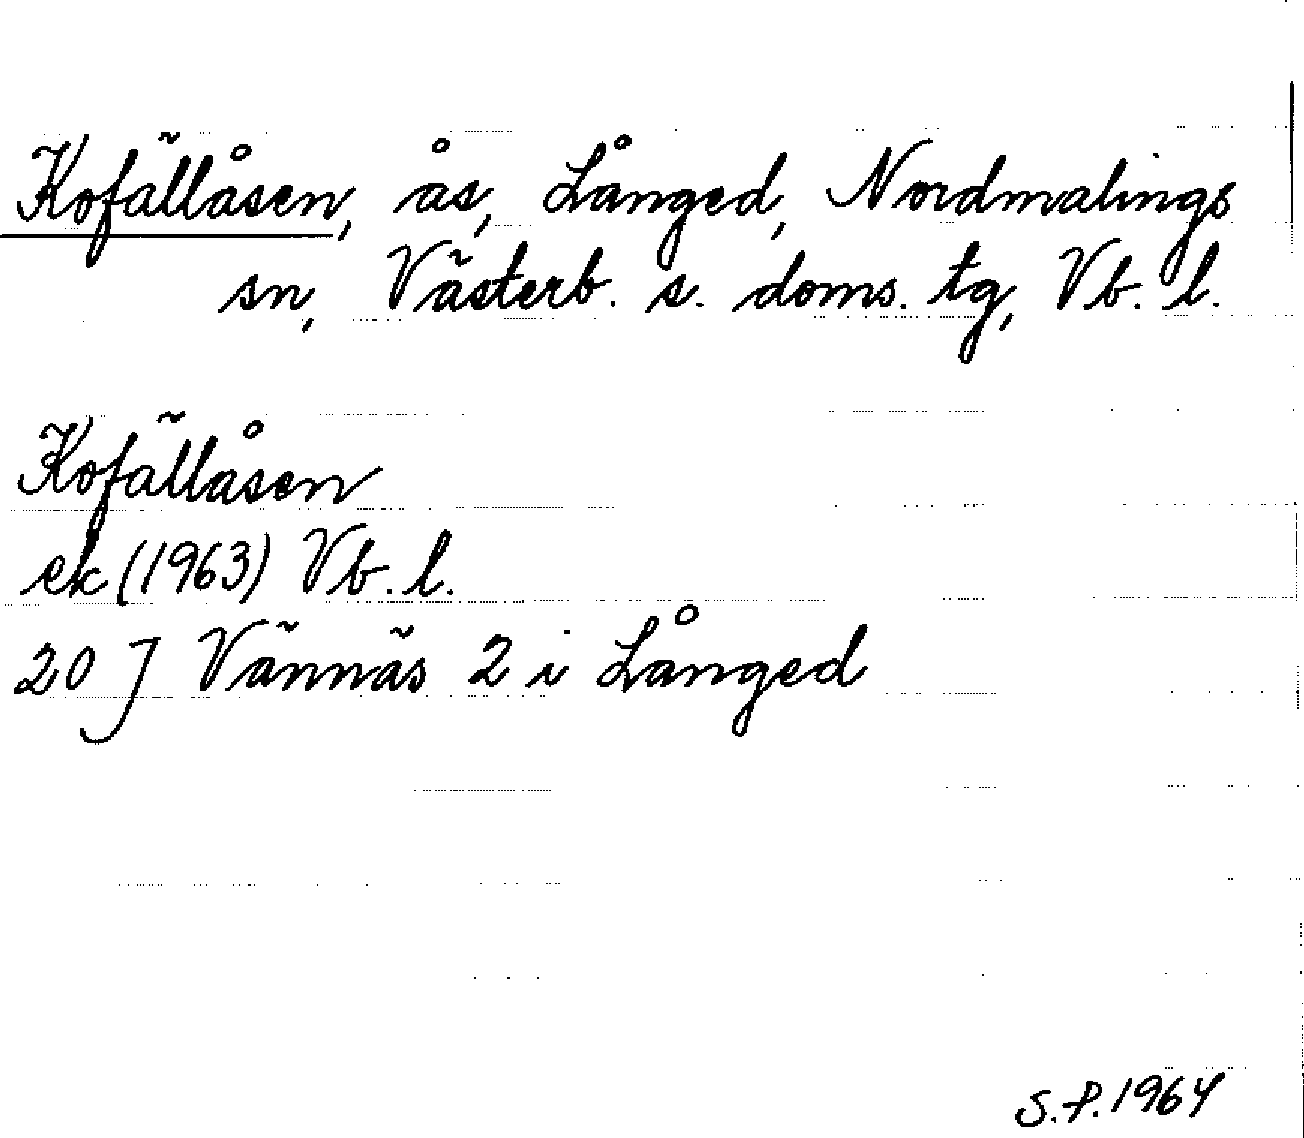 Kofällåsen, ås, Långed, Nordmalings
sn, Västerb. s. doms. tg, Vb. l.
Kofällåsen
ek (1963) Vb. l.
20 J Vännäs 2 i Långed
S.P. 1964